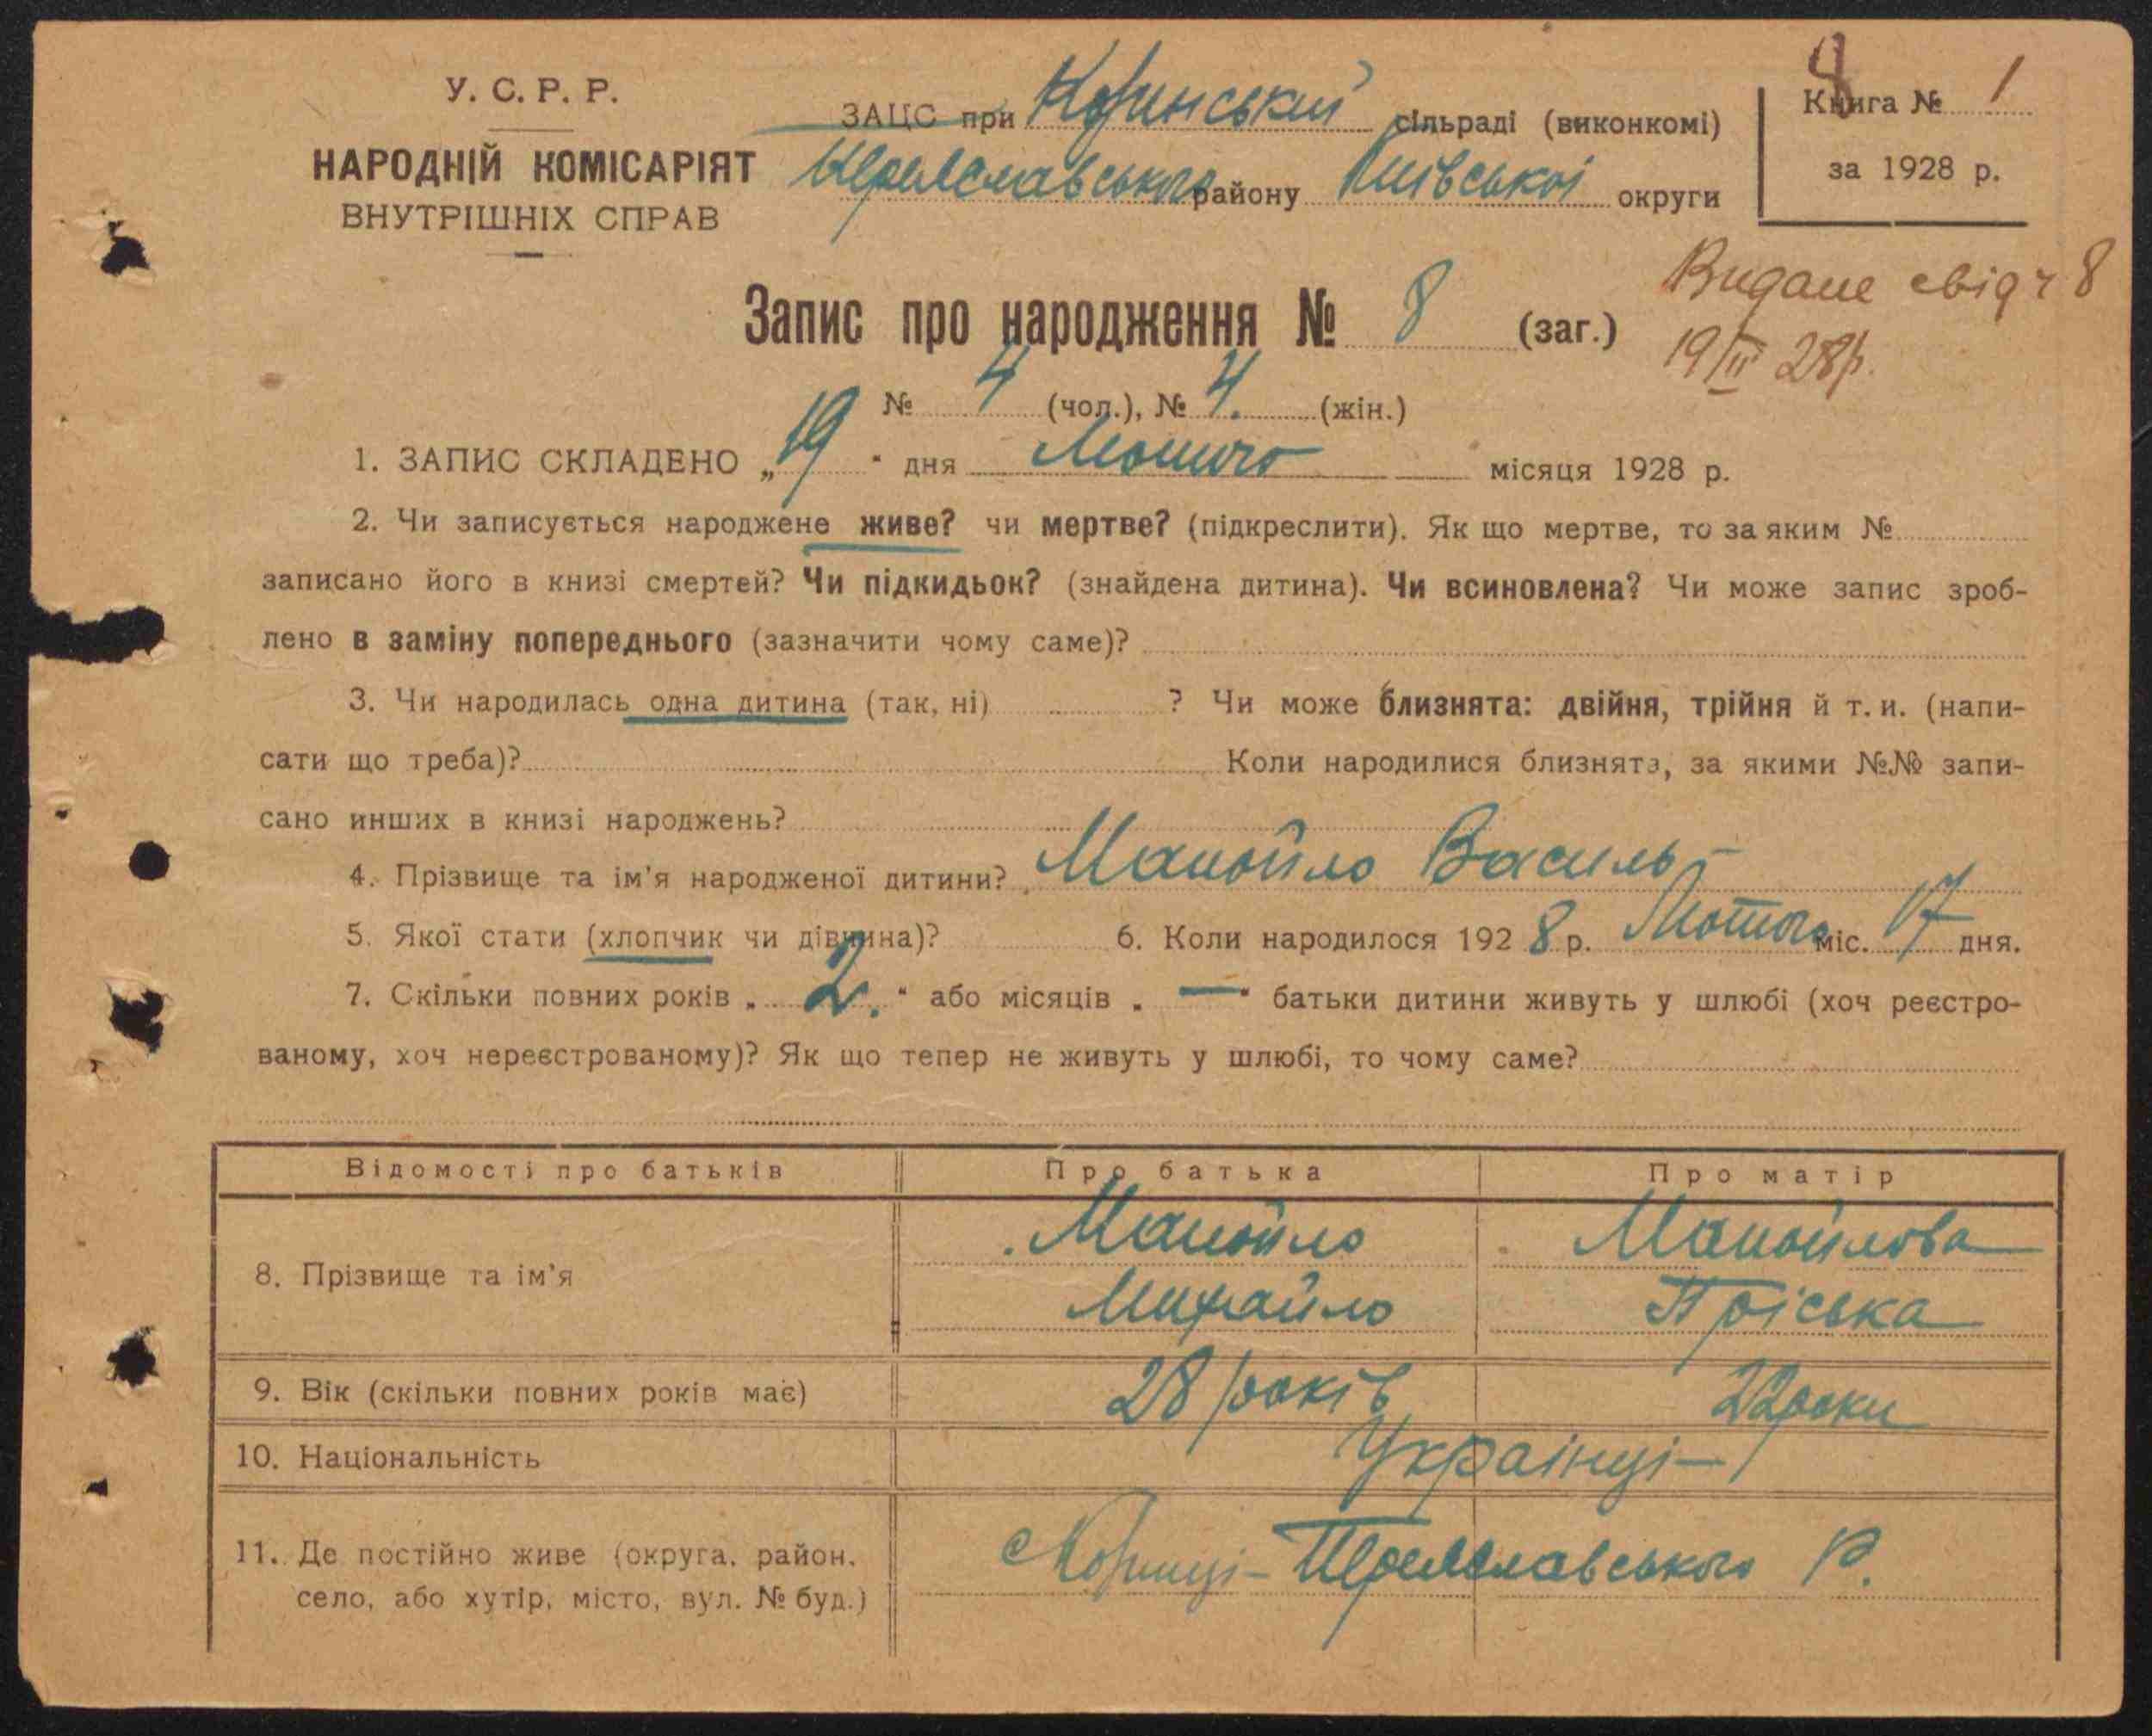 8
У. С. Р. Р.
ЗАЦС при сільраді (виконкомі)
Книга № 1
НАРОДНІЙ КОМІСАРІЯТ району Київської округи
за 1928 р.
ВНУТРІШНІХ СПРАВ
Видане свід ч 8
Запис про народження № 8 (заг.)
19/II 28р.
№ 4 (чол.), № 4. (жін.)
1. ЗАПИС СКЛАДЕНО „19“ дня Лютого місяця 1928 р.
2. Чи записується народжене живе? чи мертве? (підкреслити). Як що мертве, то за яким №
записано його в книзі смертей? Чи підкидьок? (знайдена дитина). Чи всиновлена? Чи може запис зроб-
лено в заміну попереднього (зазначити чому саме)?
3. Чи народилась одна дитина (так, ні) ? Чи може близнята: двійня, трійня й т. и. (напи-
сати що треба)? Коли народилися близнята, за якими №№ запи-
сано инших в книзі народжень?
4. Прізвище та ім'я народженої дитини? Манойло Василь
5. Якої стати (хлопчик чи дівчина)? 6. Коли народилося 1928 р. Лютого міс. 17 дня.
7. Скільки повних років „2.“ або місяців „—“ батьки дитини живуть у шлюбі (хоч реєстро-
ваному, хоч нереєстрованому)? Як що тепер не живуть у шлюбі, то чому саме?
Відомості про батьків Про батька Про матір
8. Прізвище та ім'я
Манойло Манойлова
Михайло Пріська
9. Вік (скільки повних років має) 28 років 22 роки
10. Національність Українці
11. Де постійно живе (округа, район, Р.
село, або хутір, місто, вул. № буд.)